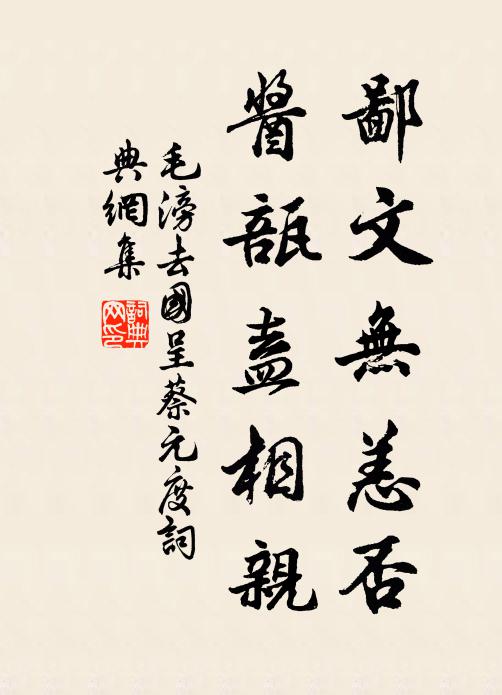 鄙文無恙否
醬瓿盍相親
毛滂去國呈蔡元度詞
典網集
詞典
网印